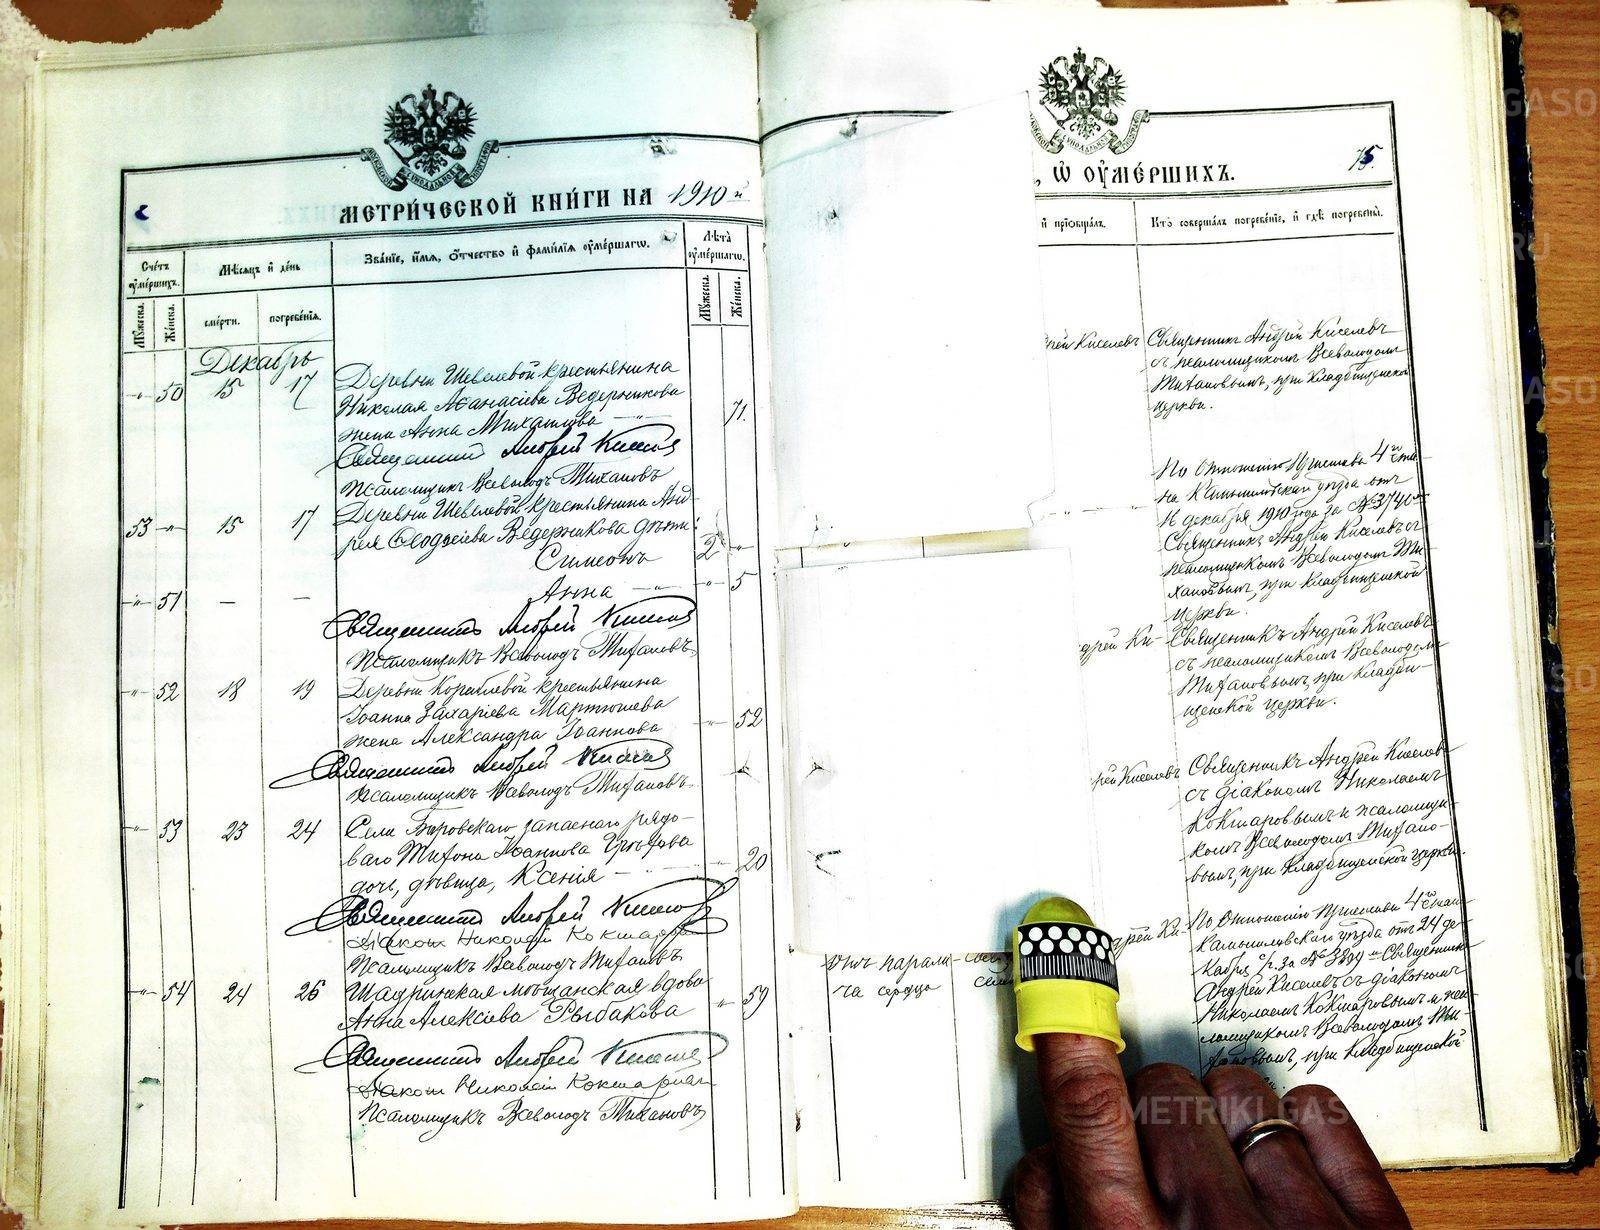 МЕТРИ́ЧЕСКОЙ КНИ́ГИ НА 1910й
Счётъ ᲂу҆ме́ршихъ.
Мѣ́сяцъ и҆ де́нь
Зва́нїе, и҆́мѧ, ѻ҆́тчество и҆ фами́лїѧ ᲂу҆ме́ршагѡ.
Лѣ́та ᲂу҆ме́ршагѡ.
Мꙋ́жеска.
Же́нска.
сме́рти.
погребе́нїѧ.
Мꙋ́жеска.
Же́нска.
Декабрь
-"- 50 15 17 Деревни Шевелевой крестьянина
Николая Аѳанасіева Ведерникова
жена Анна Михаилова 71.
Священникъ Андрей Киселевъ
Псаломщикъ Всеволодъ Тихановъ
53 -"- 15 17 Деревни Шевелевой крестьянина Анд-
рея Ѳеодосіева Ведерникова дѣти:
Симеонъ 2 -"-
-"- 51 — — Анна -"- -"- 5
Священникъ Андрей Киселевъ
Псаломщикъ Всеволодъ Тихановъ
-"- 52 18 19 Деревни крестьянина
Іоанна Захаріева Мартюшева
жена Александра Іоаннова -"- 52
Священникъ Андрей Киселевъ
Псаломщикъ Всеволодъ Тихановъ
-"- 53 23 24 Села запаснаго рядо-
ваго Тихона Іоаннова
дочь, дѣвица, Ксенія 20
Священникъ Андрей Киселевъ
Діаконъ Николай Кокшаровъ
Псаломщикъ Всеволодъ Тихановъ
-"- 54 24 26 Шадринская мѣщанская вдова
Анна Алексіева Рыбакова " 59
Священникъ Андрей Киселевъ
Діаконъ Николай Кокшаровъ
Псаломщикъ Всеволодъ Тихановъ
, Ѡ҆ ᲂУ҆МЕ́РШИХЪ.
75.
и҆ прїѡбща́лъ.
Кто̀ соверша́лъ погребе́нїе, и҆ гдѣ̀ погребены̀.
рей Киселевъ
Священникъ Андрей Киселевъ
съ псаломщикомъ Всеволодомъ
Тихановымъ, при Кладбищенской
церкви.
По отношенію Пристава 4го ста-
на Камышловскаго уѣзда отъ
16 декабря 1910 года за № 3740
Священникъ Андрей Киселевъ съ
псаломщикомъ Всеволодомъ Ти-
хановымъ, при Кладбищенской
церкви.
ндрей Ки-
Священникъ Андрей Киселевъ
съ псаломщикомъ Всеволодомъ
Тихановымъ, при Кладби-
щенской церкви.
рей Киселевъ
Священникъ Андрей Киселевъ
съ діакономъ Николаемъ
Кокшаровымъ и псаломщи-
комъ Всеволодомъ Тихано-
вымъ, при Кладбищенской церкви.
дрей Ки-
По отношенію Пристава 4го стана
Камышловскаго уѣзда отъ 24 де-
кабря с/г. за № 3899 Священникъ
Андрей Киселевъ съ діакономъ
Николаемъ Кокшаровымъ и пса-
ломщикомъ Всеволодомъ Ти-
хановымъ, при Кладбищенской
отъ парали-
ча сердца
METRIKI.GASO